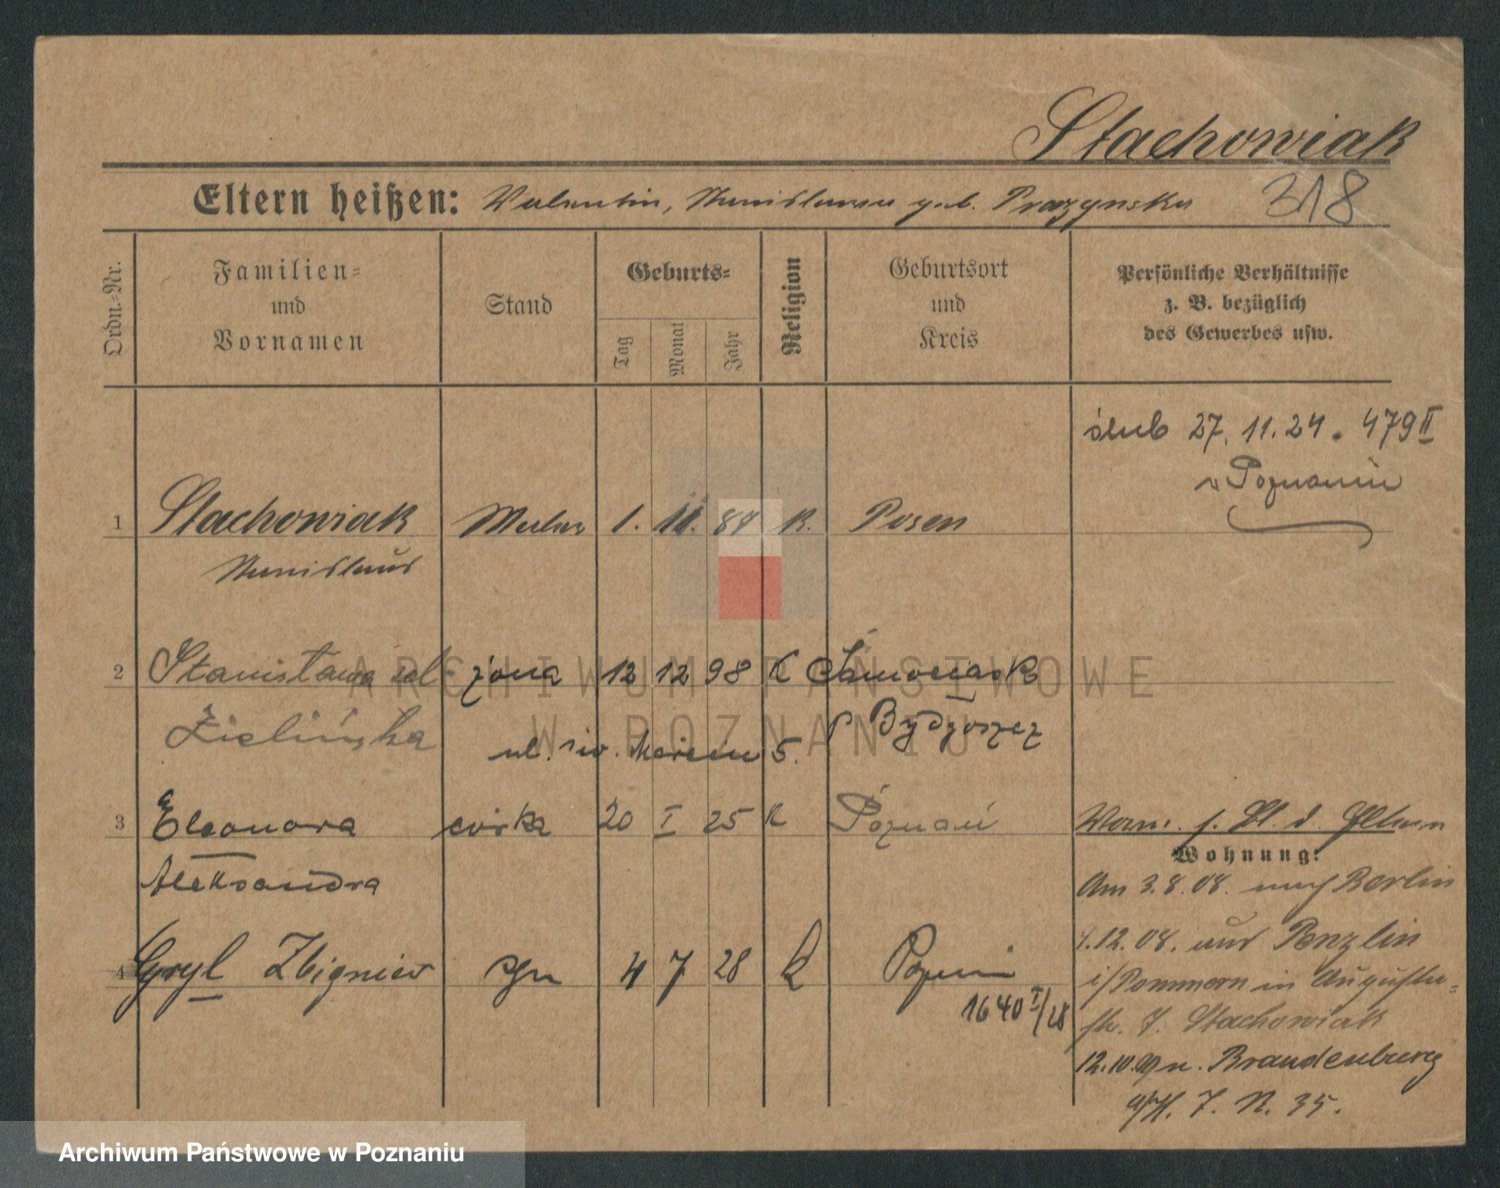 Stachowiak
Eltern heißen: Valentin, Stanislawa geb. Prazynska 318
Ordn.-Nr.
Familien-
und
Vornamen
Stand
Geburts-
Tag
Monat
Jahr
Religion
Geburtsort
und
Kreis
Persönliche Verhältnisse
z. B. bezüglich
des Gewerbes usw.
ślub 27. 11. 24. 479 II
w Poznaniu
1 Stachowiak 1. 11. 87 K. Posen
Stanislaus
2 Stanisława żona 12 12 98 K
Zielińska ul. św. Marcin 5. p Bydgoszcz
3 Eleonora córka 20 I 25 K Poznań
Wohnung:
Aleksandra
Am 3.8.08. nach Berlin
12.08. aus Penzlin
4 Gryl Zbigniew syn 4 7 28 K Poznań
1640 I/28
i/Pommern in Augusta-
str. 7. Stachowiak
12.10.09 n. Brandenburg
a/H. 7. N. 35.
ARCHIWUM PAŃSTWOWE
W POZNANIU
Archiwum Państwowe w Poznaniu